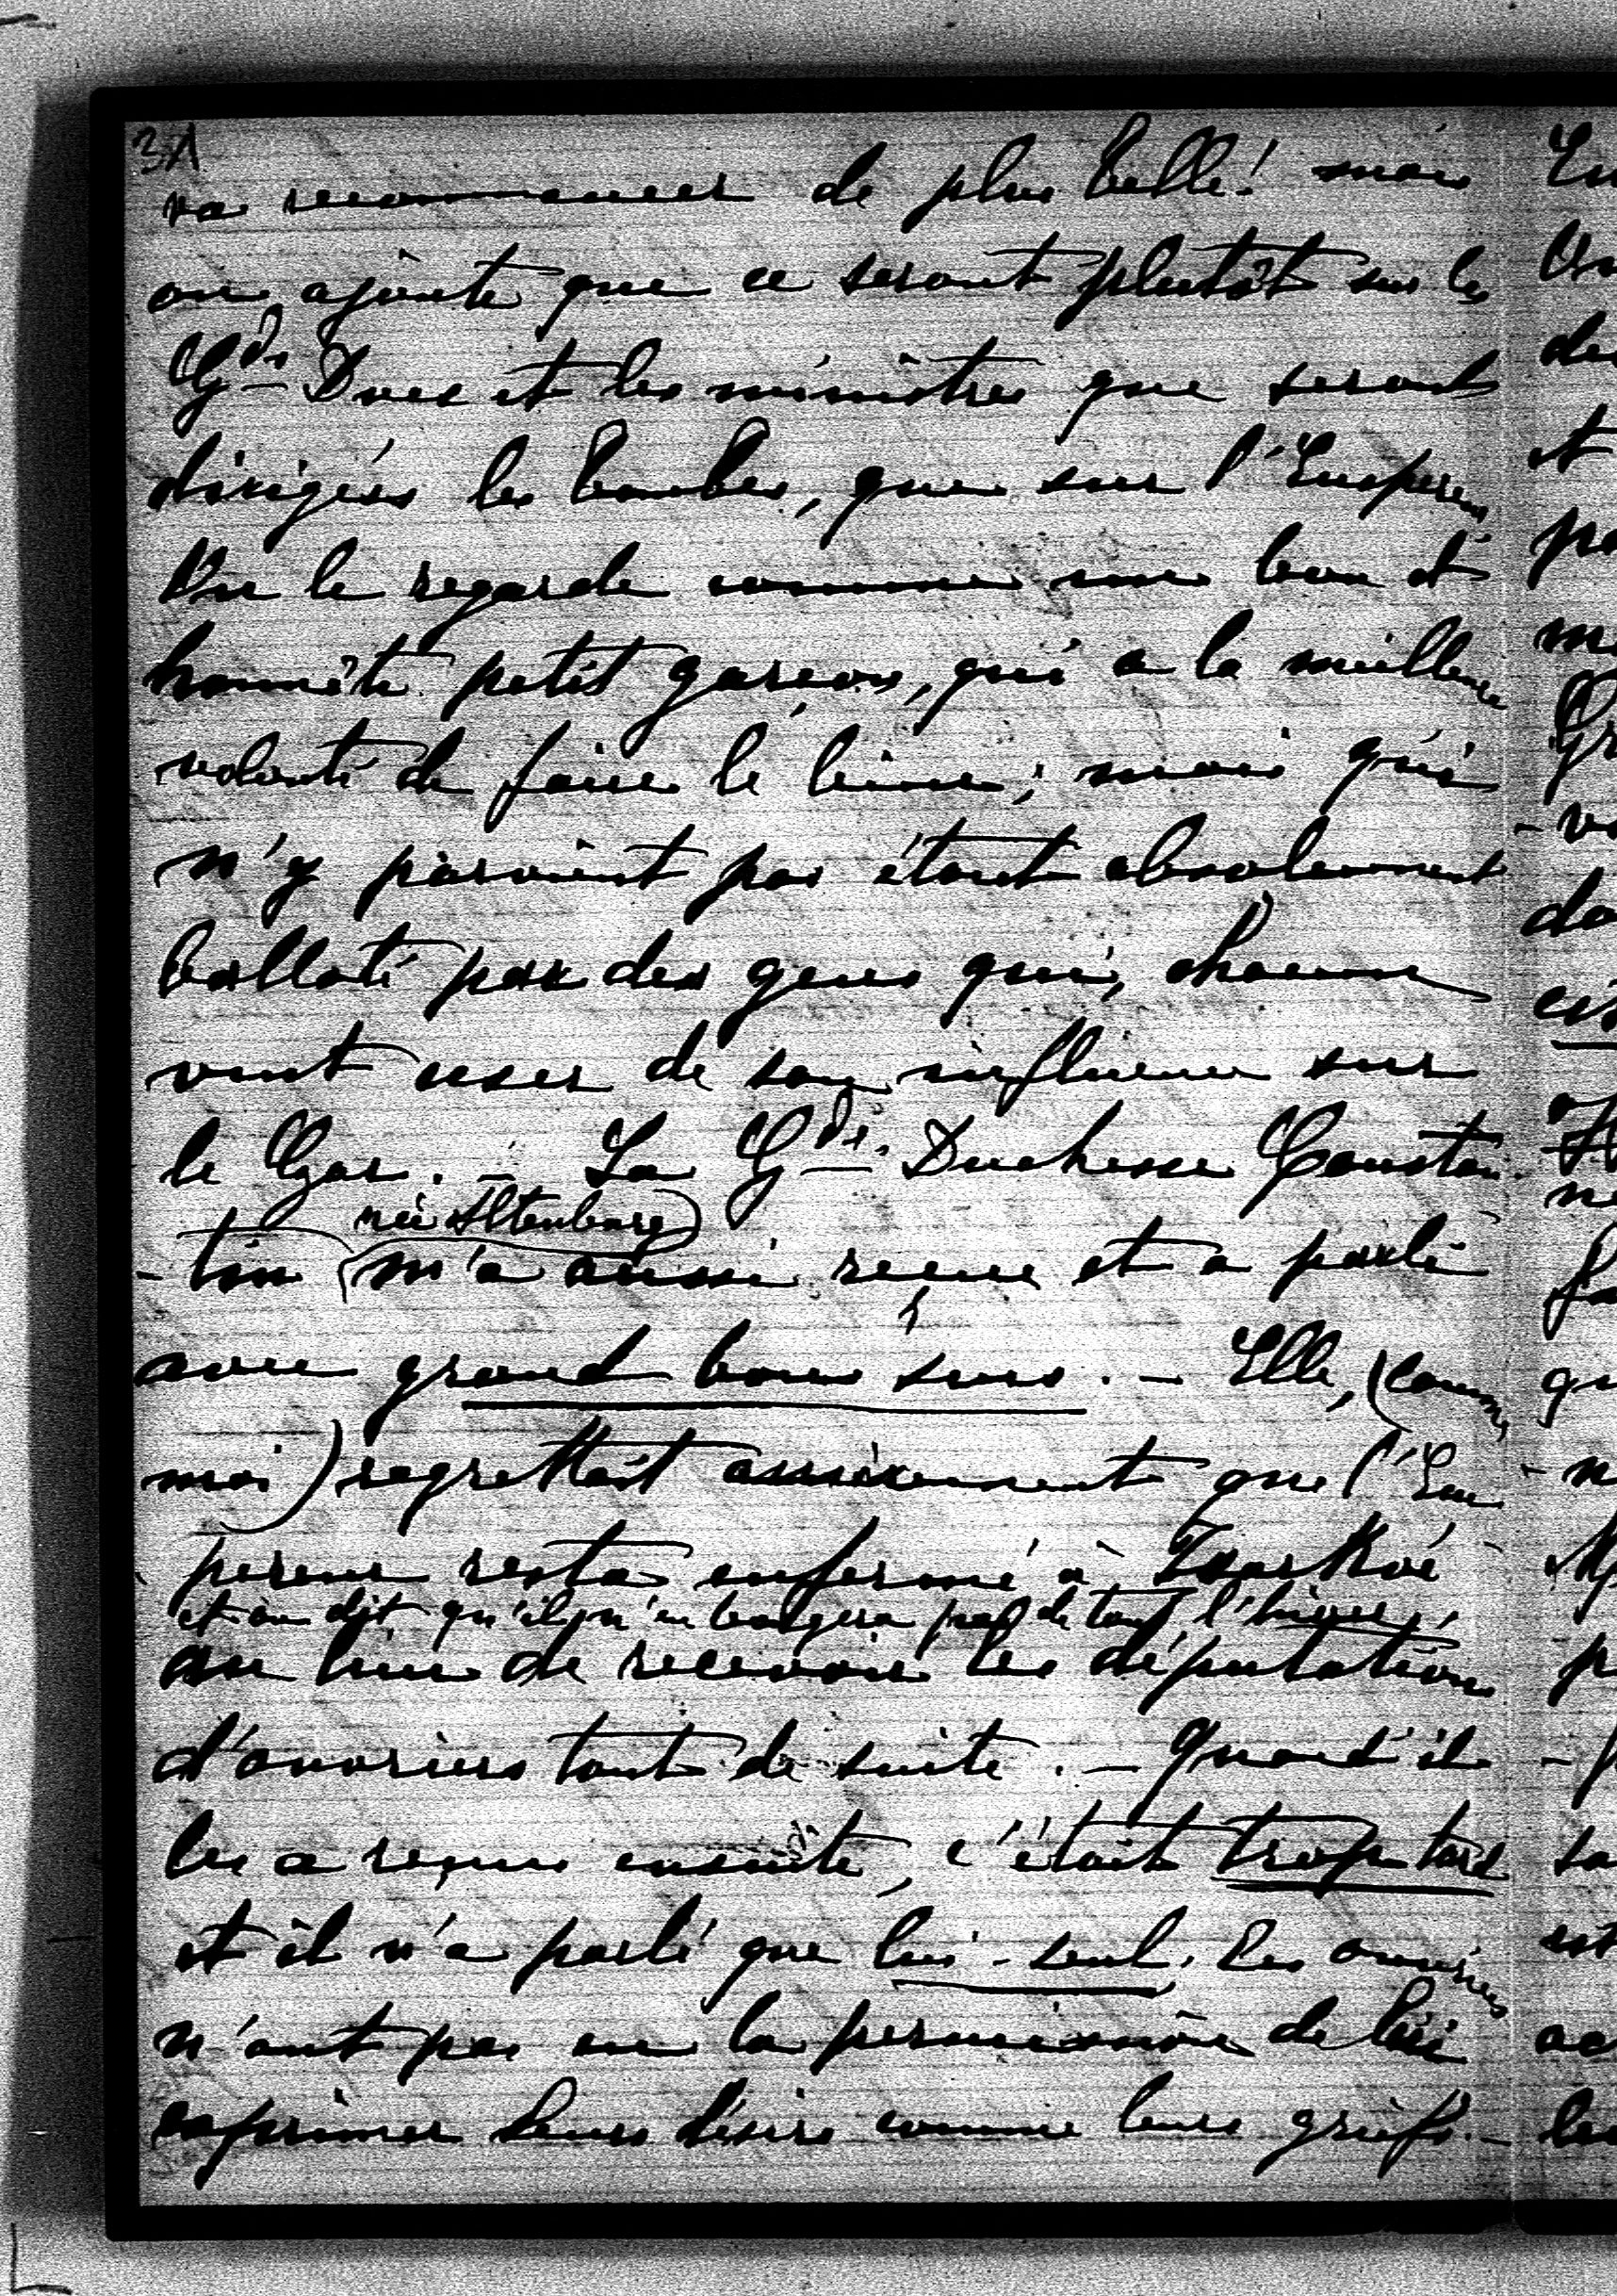 3A
va recommencer de plus belle! mais
on ajoute que ce seront plutôt sur les
Gds Ducs et les ministres que seront
dirigées les bombes, que sur l'Empereur
On le regarde comme un bon et
honnête petit garçon, qui a la meilleure
volonté de faire le bien; mais qui
n'y parvient pas étant absolument
balloté par des gens qui, chacun
veut user de son influence sur
le Czar. - La Gde Duchesse Constan-
-tin (née Altenburg) m'a aussi reçue et a parlé
avec grand bon sens. - Elle, (comme
moi) regrettait amèrement que l'Em-
pereur resta enfermé à Tsarkoé
et on dit qu'il n'en bougera pas de tout l'hiver,
au lieu de recevoir les députations
d'ouvriers tout de suite. - Quand il
les a reçus ensuite, c'était trop tard
et il n'a parlé que lui-seul. Les ouvriers
n'ont pas eu la permission de lui
exprimer leurs désirs comme leurs griefs. -